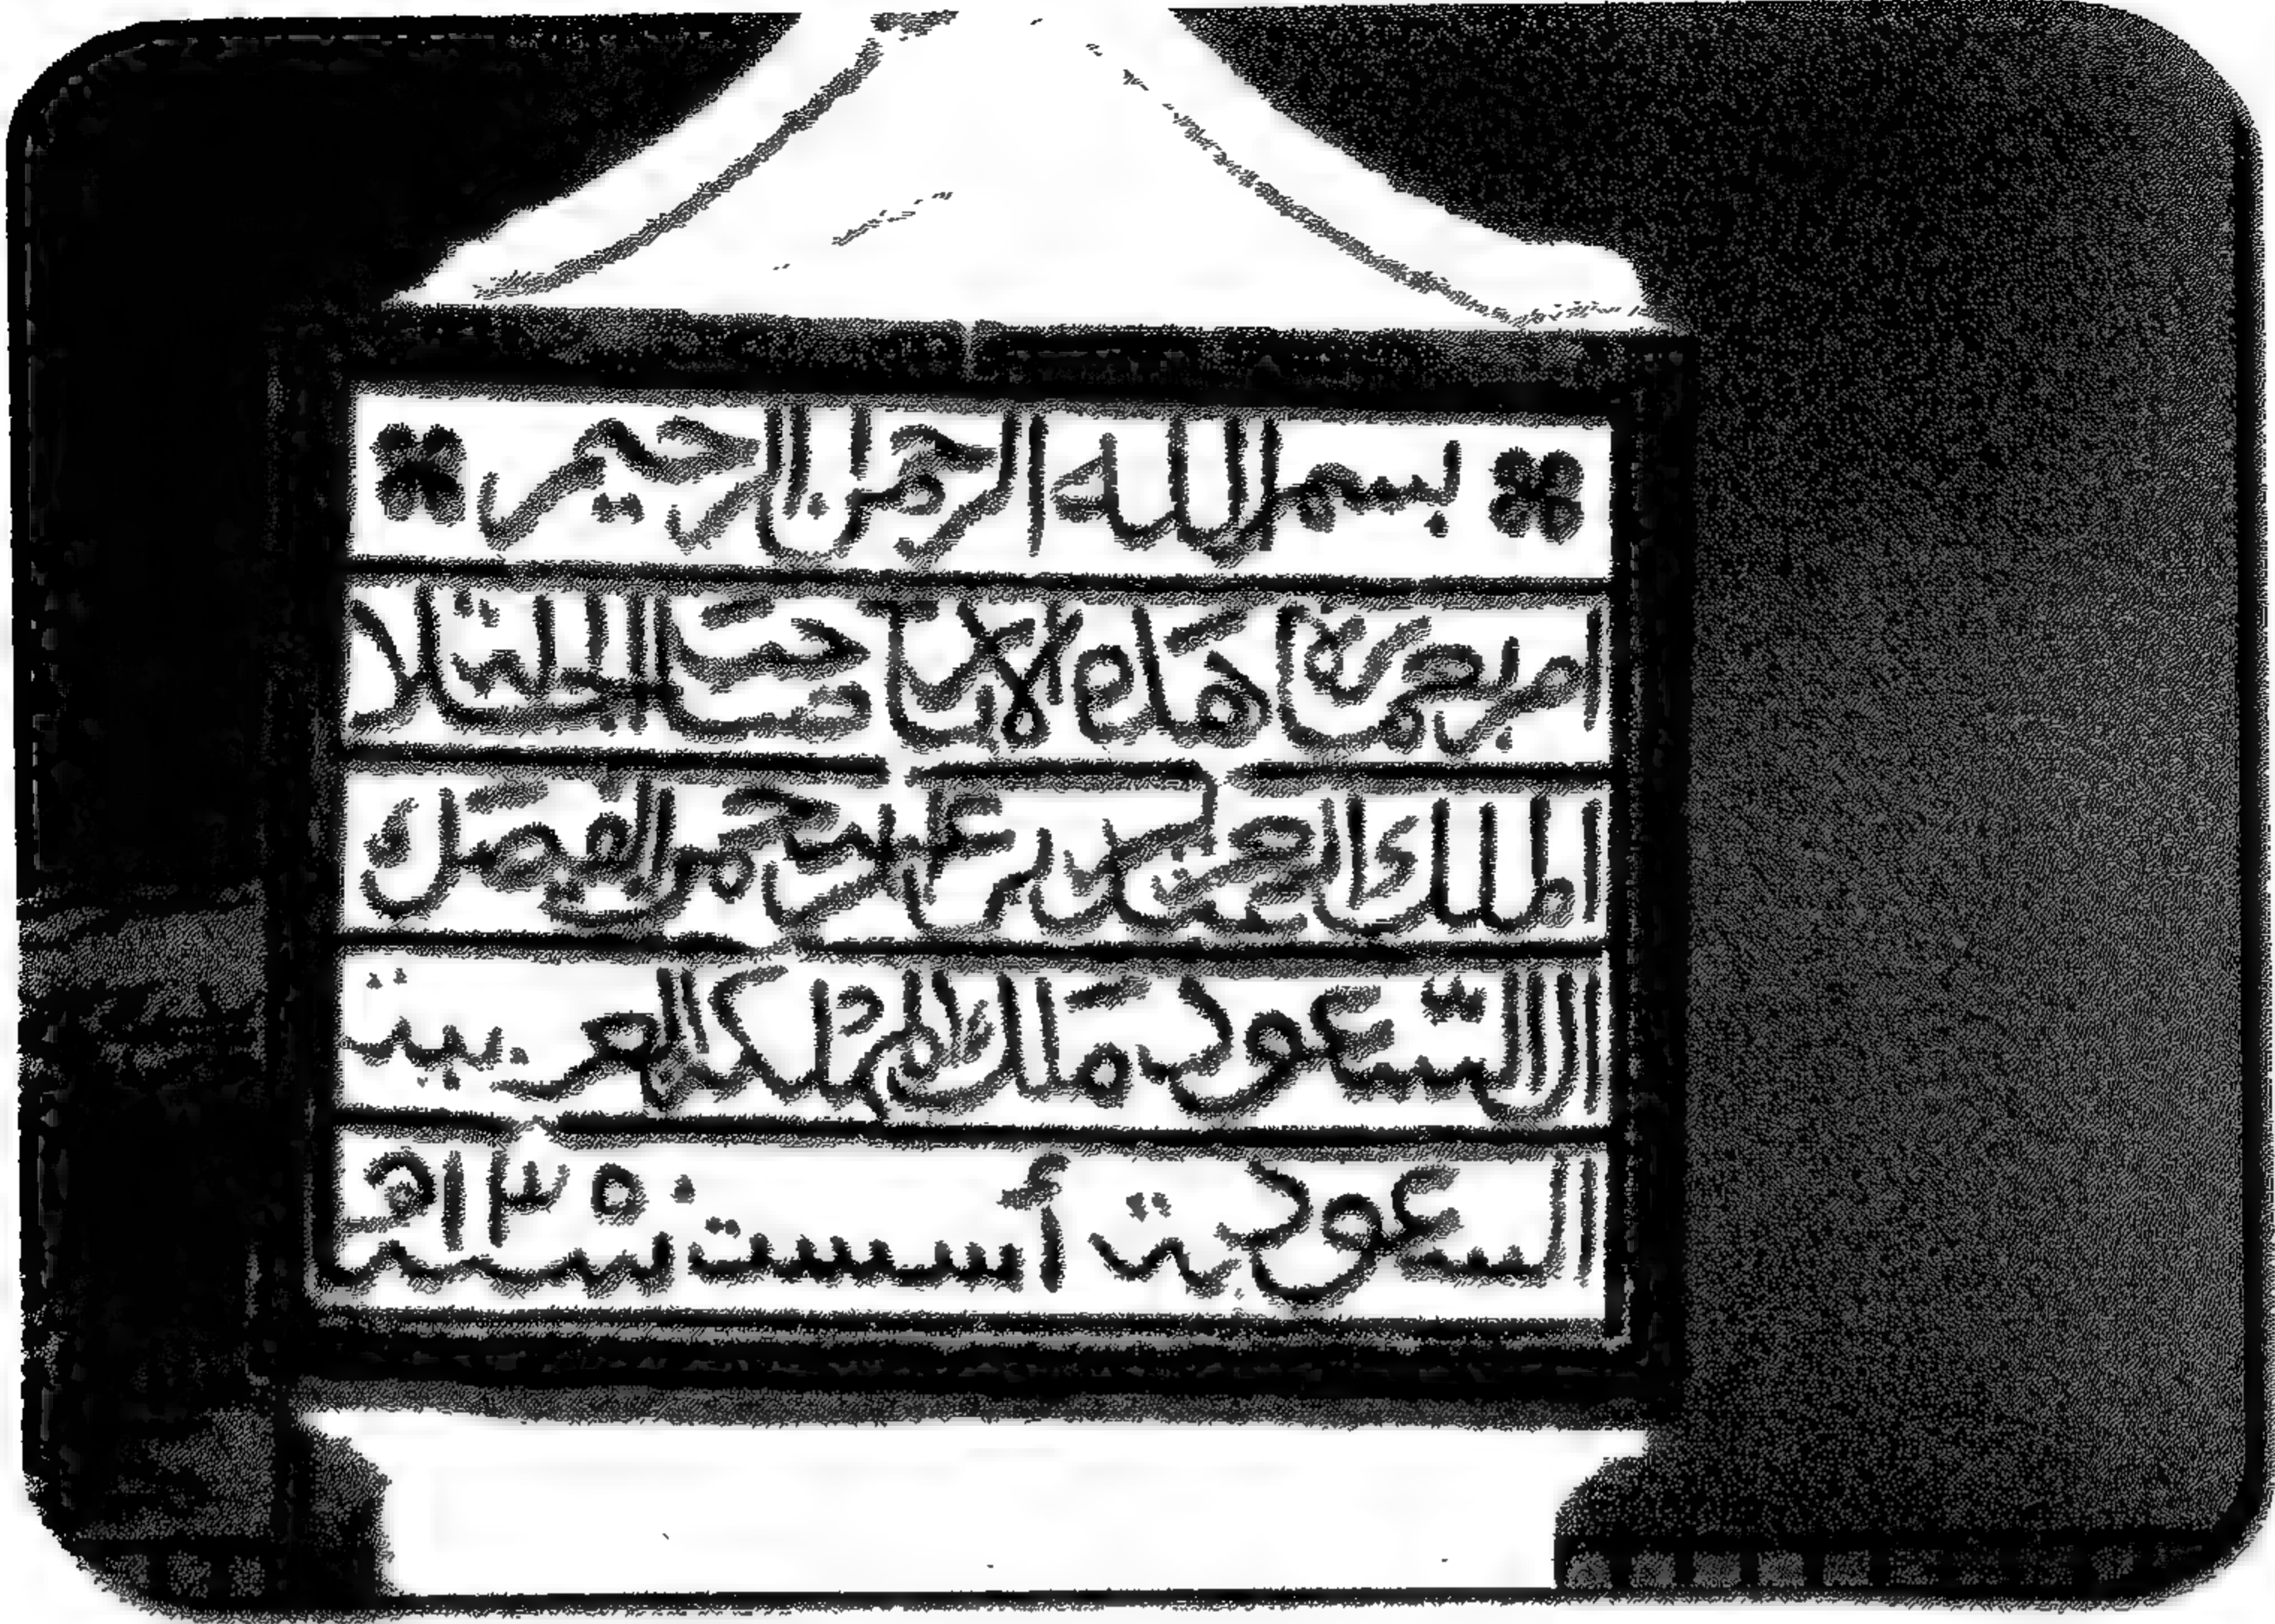 بسم الله الرحمن الرحيم
امر صاحب الجلالة
الملك عبد العزيز بن عبد الرحمن الفيصل
ال السعود ملك المملكة العربية
السعودية أسست سنة ١٣٥٠ه